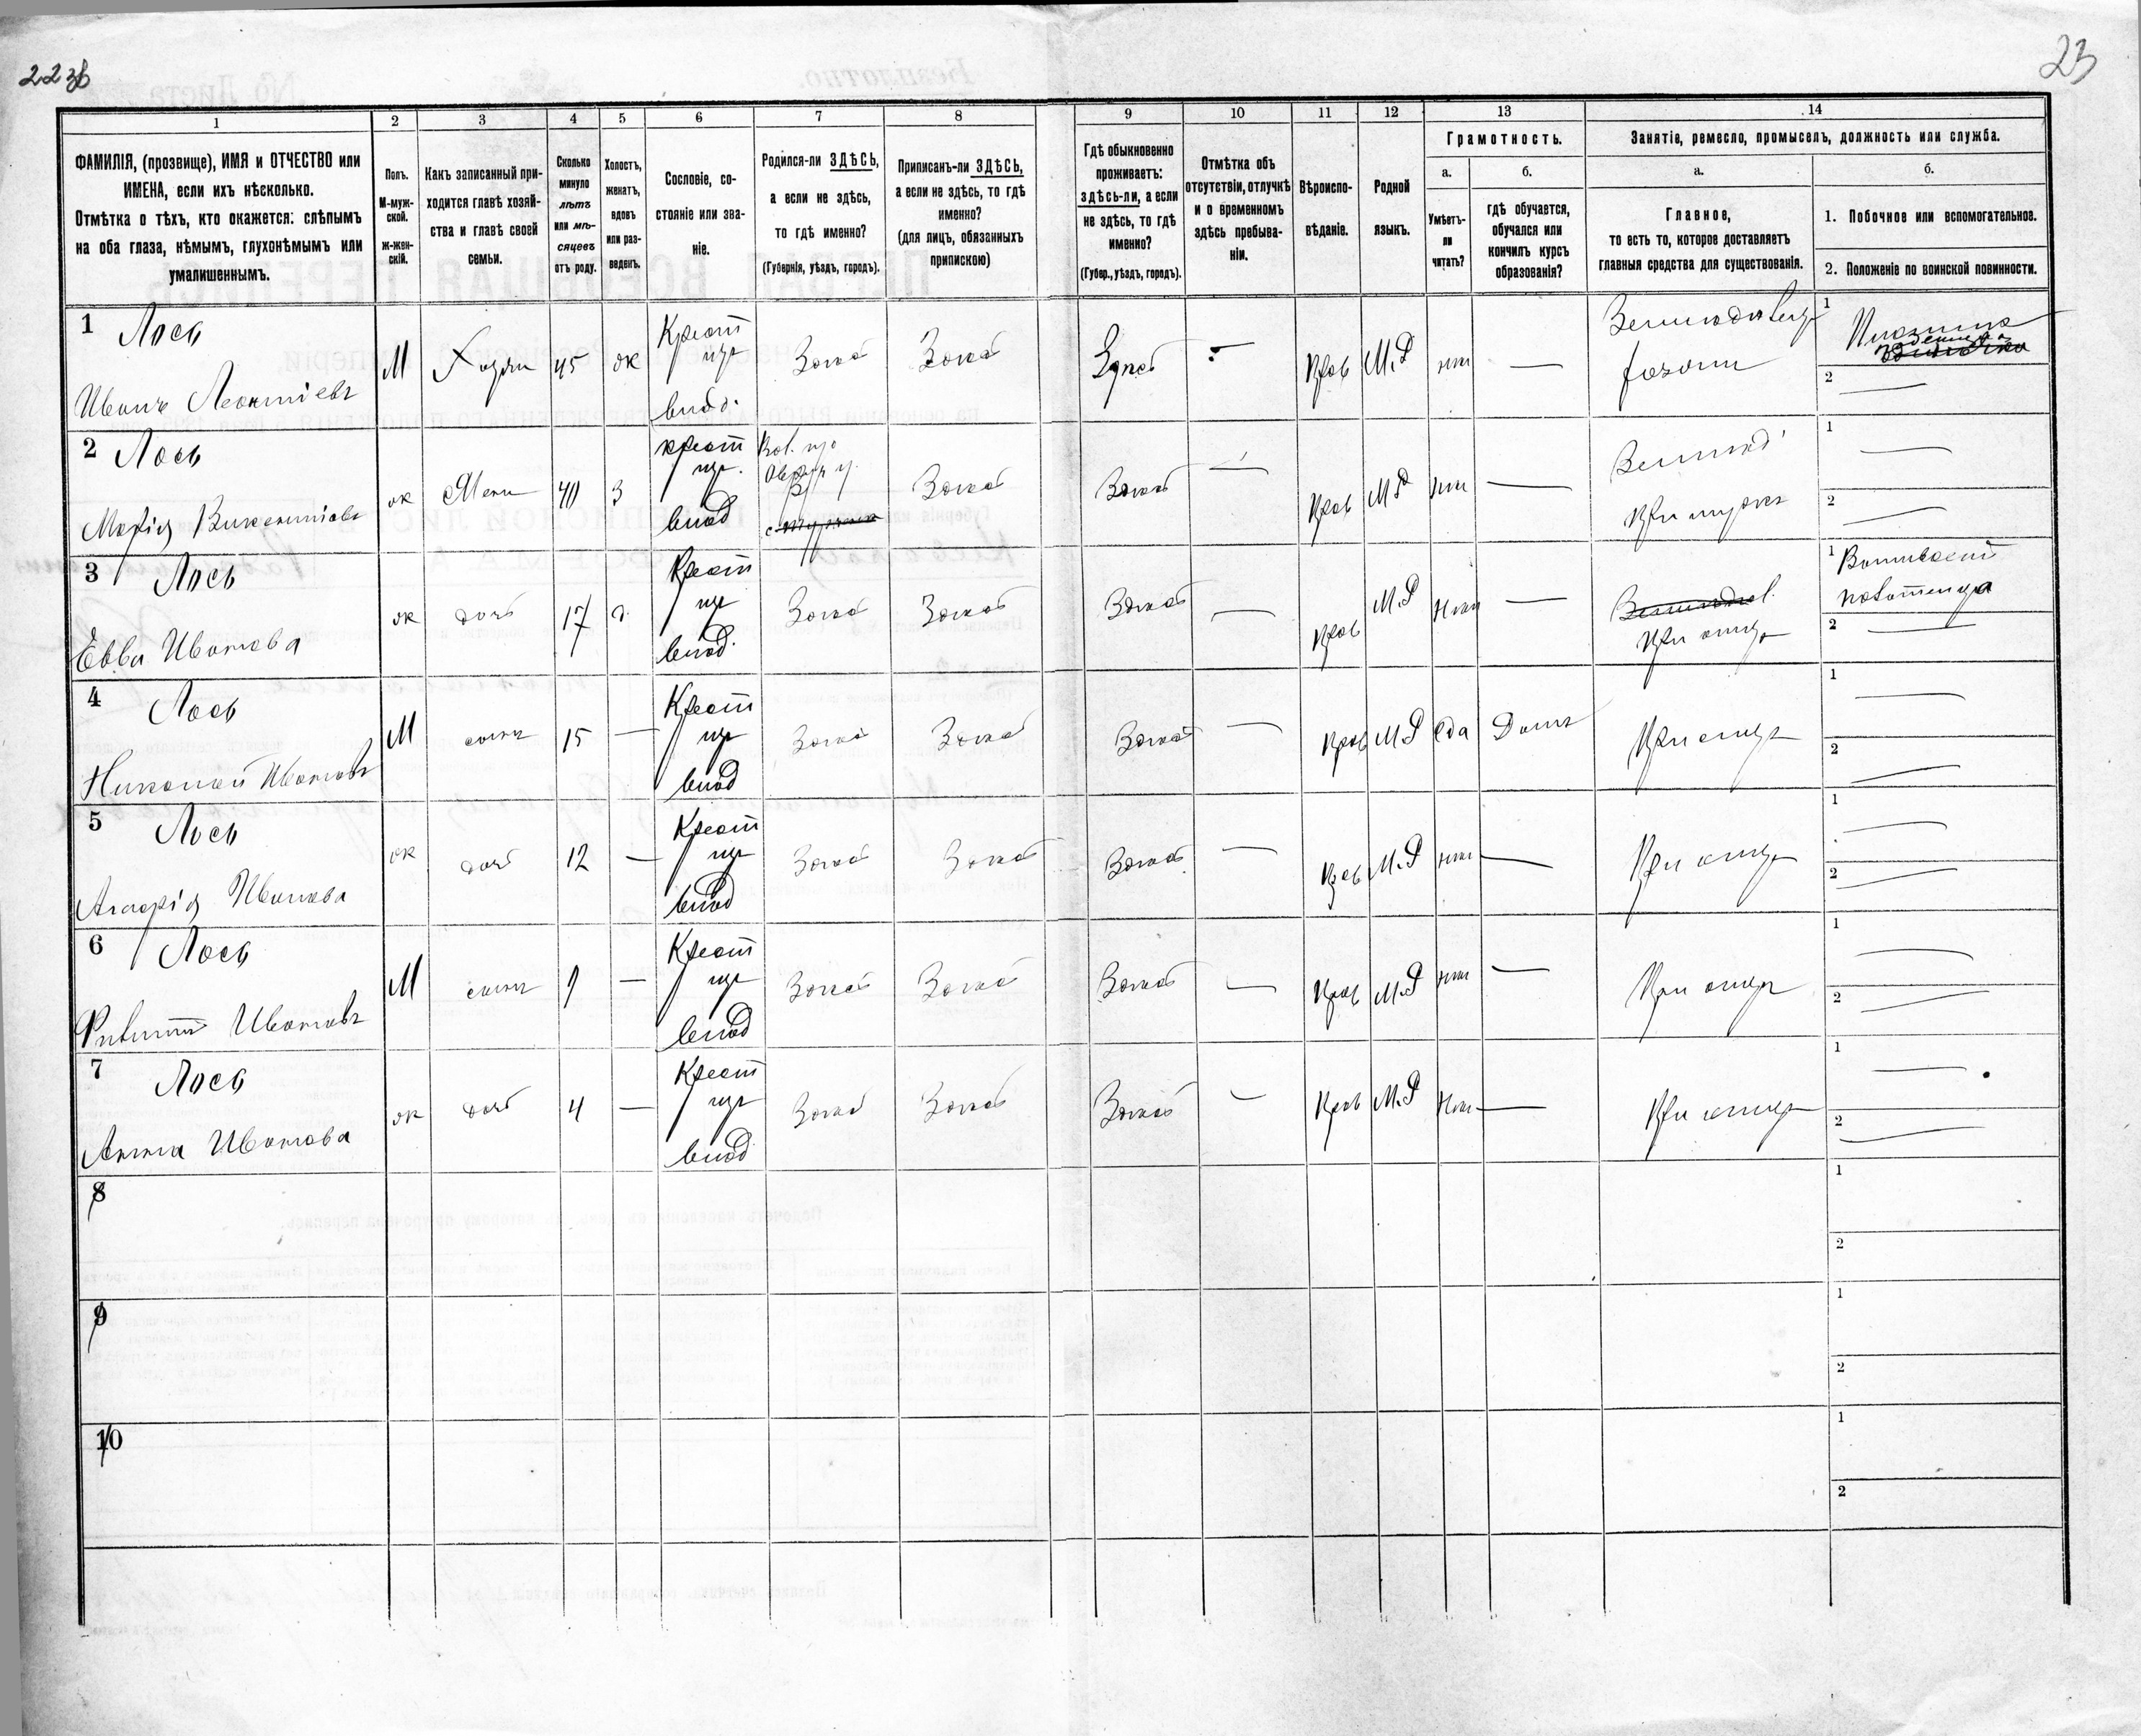 22 зв
23
1
2
3
4
5
6
7
8
9
10
11
12
13
14
ФАМИЛІЯ, (прозвище), ИМЯ и ОТЧЕСТВО или
ИМЕНА, если ихъ нѣсколько.
Отмѣтка о тѣхъ, кто окажется: слѣпымъ
на оба глаза, нѣмымъ, глухонѣмымъ или
умалишеннымъ.
Полъ.
М-муж-
ской.
Ж-жен-
скій.
Какъ записанный при-
ходится главѣ хозяй-
ства и главѣ своей
семьи.
Сколько
минуло
лѣтъ
или мѣ-
сяцевъ
отъ роду.
Холостъ,
женатъ,
вдовъ
или раз-
веденъ.
Сословіе, со-
стояніе или зва-
ніе.
Родился-ли ЗДѢСЬ,
а если не здѣсь,
то гдѣ именно?
(Губернія, уѣздъ, городъ).
Приписанъ-ли ЗДѢСЬ,
а если не здѣсь, то гдѣ
именно?
(для лицъ, обязанныхъ
припискою)
Гдѣ обыкновенно
проживаетъ:
здѣсь-ли, а если
не здѣсь, то гдѣ
именно?
(Губер., уѣздъ, городъ).
Отмѣтка объ
отсутствіи, отлучкѣ
и о временномъ
здѣсь пребыва-
ніи.
Вѣроиспо-
вѣданіе.
Родной
языкъ.
Грамотность.
а.
Умѣетъ-
ли
читать?
б.
гдѣ обучается,
обучался или
кончилъ курсъ
образованія?
Занятіе, ремесло, промыселъ, должность или служба.
а.
Главное,
то есть то, которое доставляетъ
главныя средства для существованія.
б.
1. Побочное или вспомогательное.
2. Положеніе по воинской повинности.
1 Лось
Иванъ Леонтіевъ
М
45
ж
Крест
влад.
Здѣсь
Здѣсь
Здѣсь
Прав
М.Р
нѣтъ
Земледѣлецъ
хозяин
1
2
2 Лось
Марія Викентіова
ж
Жена
40
З
крест
влад
Здѣсь
Здѣсь
Прав
М Р
нѣтъ
Землед
При мужѣ
1
2
3 Лось
Евва Иванова
ж
дочь
17
Крест
влад.
Здѣсь
Здѣсь
Здѣсь
Прав
М.Р
нѣтъ
При отцѣ
1 Вышиваетъ
полотенца
2
4 Лось
Николай Ивановъ
М
сынъ
15
Крест
влад
Здѣсь
Здѣсь
Здѣсь
Прав
М.Р
Да
Дома
При отцѣ
1
2
5 Лось
Агафія Иванова
ж
дочь
12
Крест
влад
Здѣсь
Здѣсь
Здѣсь
Прав
М.Р
нѣтъ
При отцѣ
1
2
6 Лось
Филиппъ Ивановъ
М
сынъ
Крест
влад
Здѣсь
Здѣсь
Здѣсь
Прав
М.Р
нѣтъ
При отцѣ
1
2
7 Лось
Анна Иванова
ж
дочь
4
Крест
влад
Здѣсь
Здѣсь
Здѣсь
Прав
М.Р
Нѣтъ
При отцѣ
1
2
8
1
2
9
1
2
10
1
2